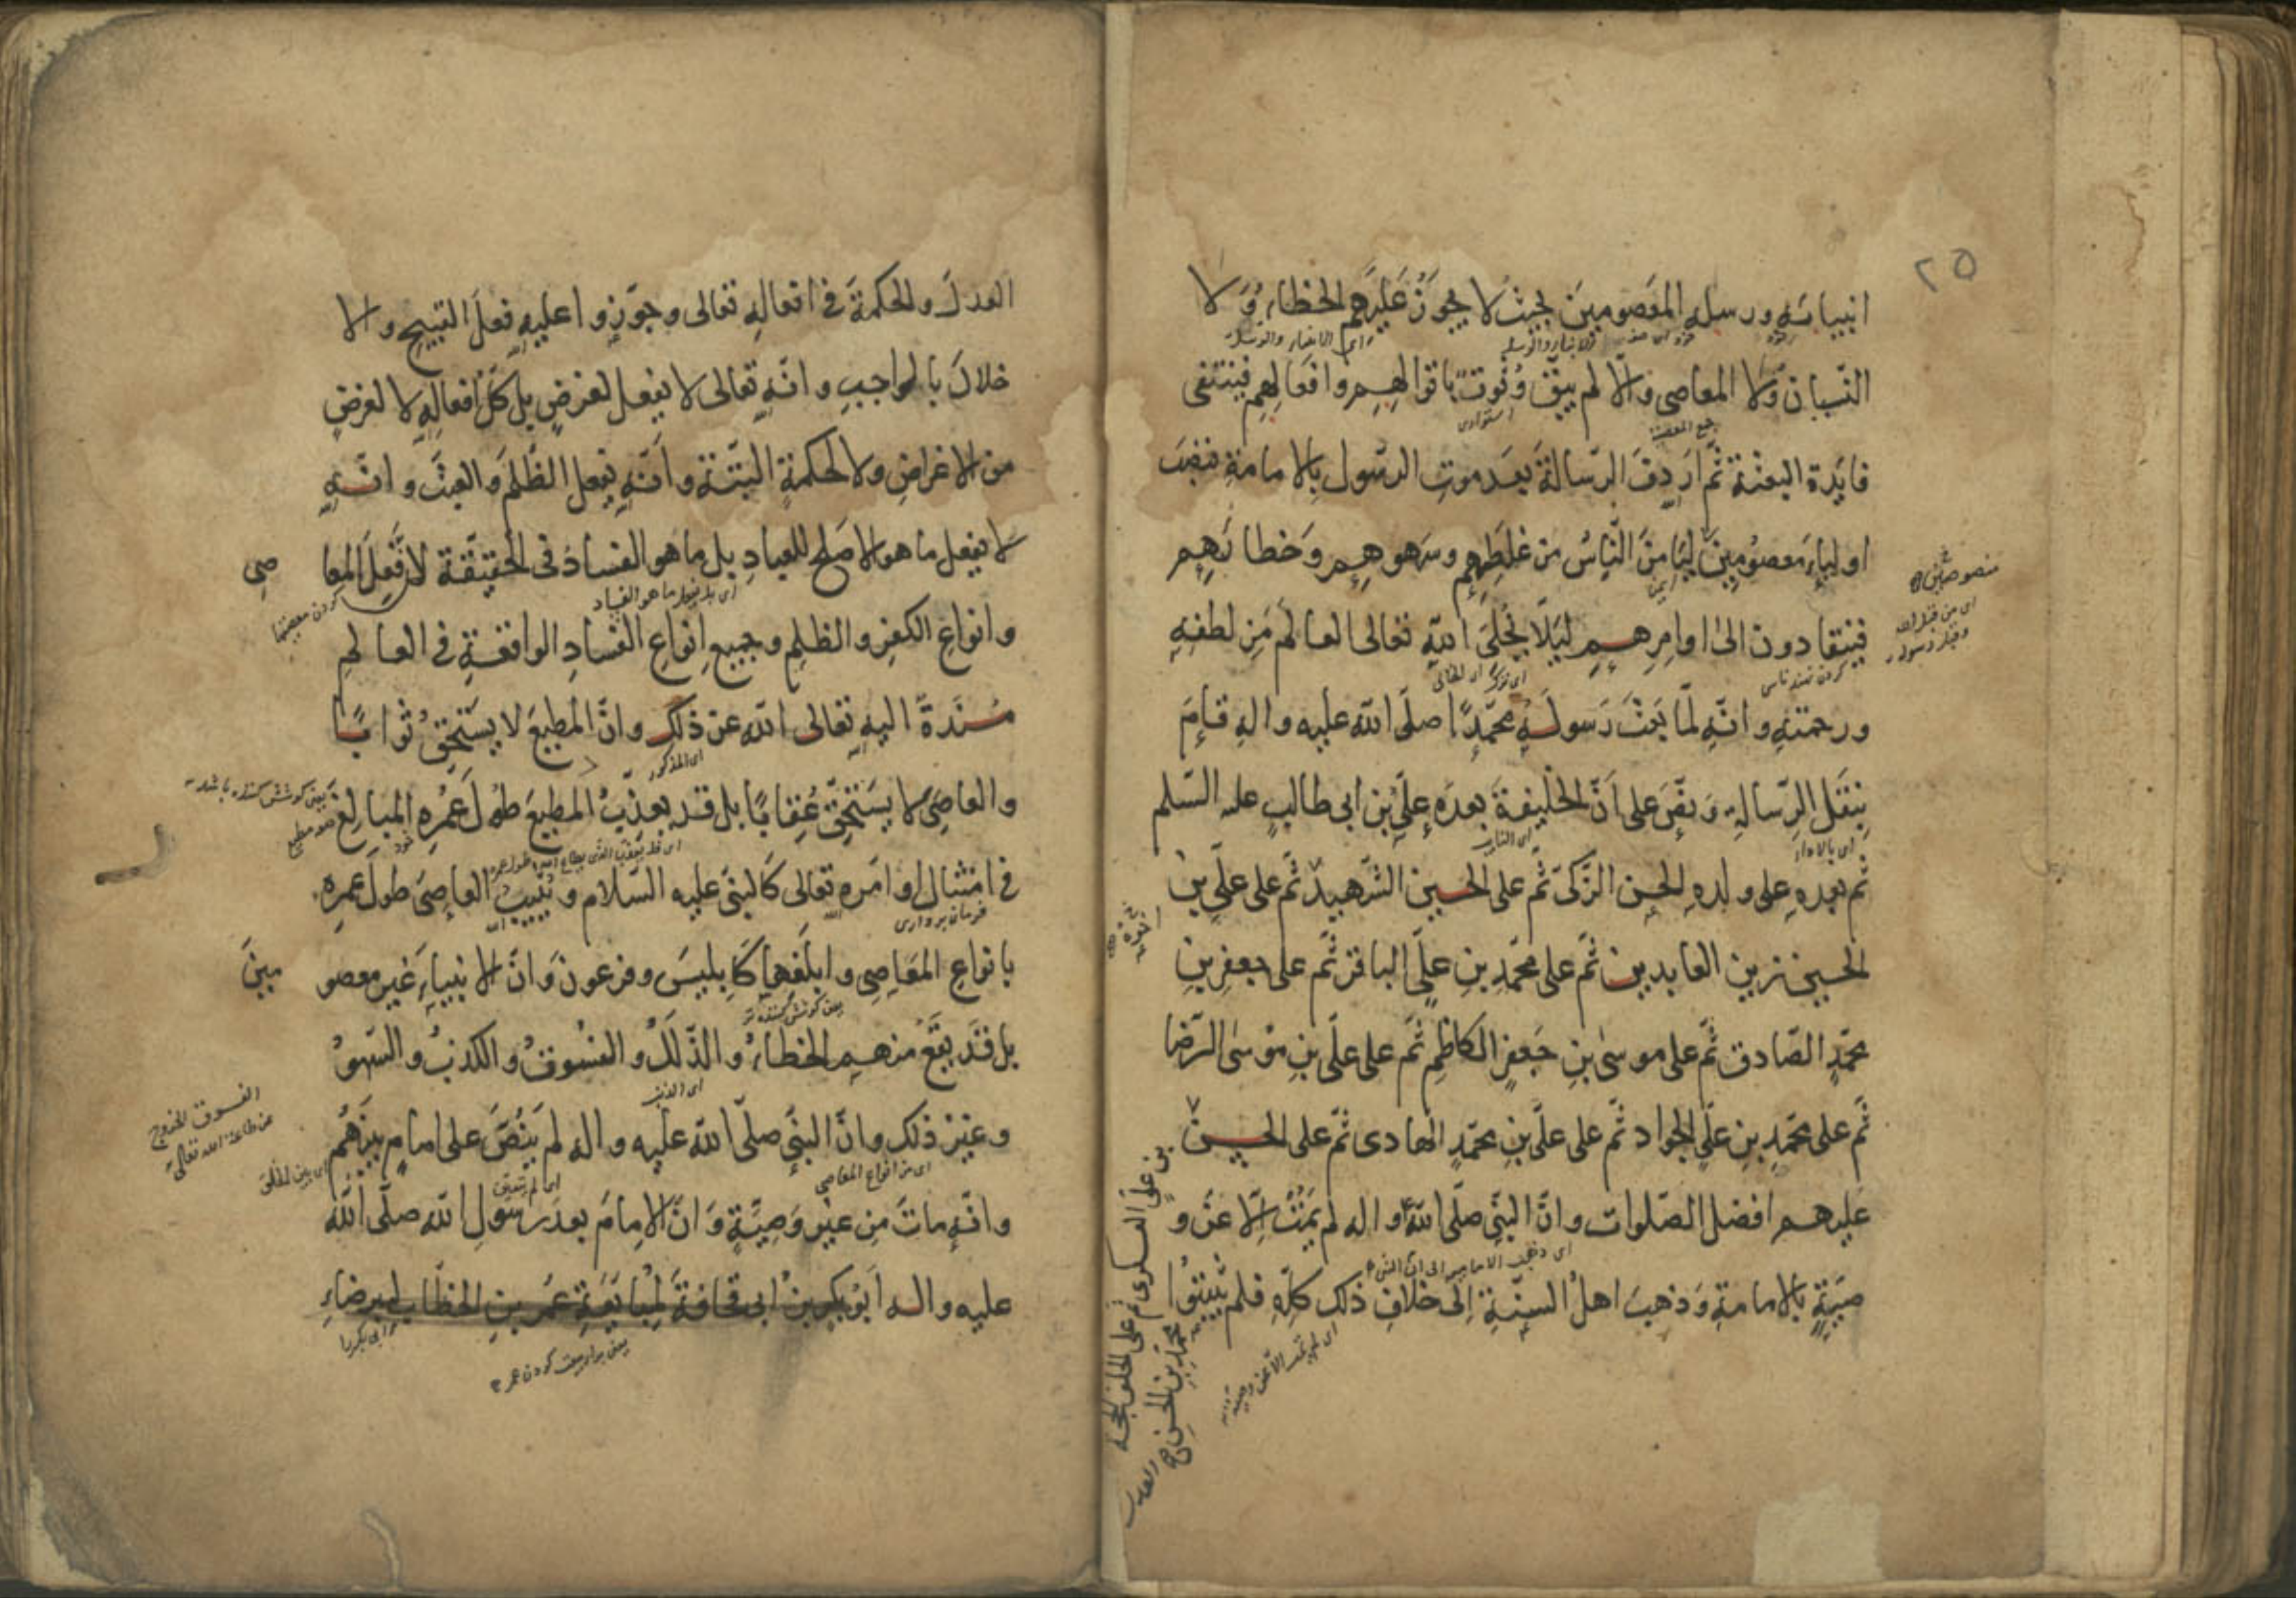 ٢٥
انبيائه ورسله المعصومين بحيث لا يجوز عليهم الخطاء ولا
النسيان ولا المعاصى والا لم يبق وثوق باقوالهم وافعالهم فينتفى
فايدة البعثة ثم اردف الرسالة بعد موت الرسول بالامامة فنصب
اولياء معصومين ليامن الناس من غلطهم وسهوهم وخطائهم
فينقادون الى اوامرهم ليلا يخلى الله تعالى العالم من لطفه
ورحمته وانه لما بعث رسوله محمدا صلى الله عليه واله قام
بنقل الرسالة ونص على ان الخليفة بعده على بن ابى طالب عليه السلم
ثم بعده على ولده الحسن الزكى ثم على الحسين الشهيد ثم على على بن
الحسين زين العابدين ثم على محمد بن على الباقر ثم على جعفر بن
محمد الصادق ثم على موسى بن جعفر الكاظم ثم على على بن موسى الرضا
ثم على محمد بن على الجواد ثم على على بن محمد الهادى ثم على الحسن
بن على العسكرى ثم على الخلف الحجة
محمد بن الحسن
عليهم افضل الصلوات وان النبى صلى الله واله لم يمت الا عن و
صية بالامامة وذهب اهل السنة الى خلاف ذلك كله فلم يثبتوا
منصوصين
اى من قبل الله
وقبل رسوله
العدل والحكمة فى افعاله تعالى وجوزوا عليه فعل القبيح والا
خلال بالواجب وانه تعالى لا يفعل لغرض بل كل افعاله لا لغرض
من الاغراض ولا لحكمة البتة وانه يفعل الظلم والعبث وانه
لا يفعل ما هو الاصلح للعباد بل ما هو الفساد فى الحقيقة لان فعل المعا صى
اى بل يفعل ما هو الفساد
وانواع الكفر والظلم وجميع انواع الفساد الواقعة فى العالم
مسندة اليه تعالى الله عن ذلك وان المطيع لا يستحق ثوابا
اى المذكور
والعاصى لا يستحق عقابا بل قد يعذب المطيع طول عمره المبالغ
فى امتثال اوامره تعالى كالنبى عليه السلام ويثيب العاصى طول عمره
فرمان بردارى
بانواع المعاصى وابلغها كابليس وفرعون وان الانبياء غير معصو مين
يعنى كوشش كننده تر
بل قد يقع منهم الخطاء والذلل والفسوق والكذب والسهو
اى الذنب
وغير ذلك وان النبى صلى الله عليه واله لم ينص على امام بينهم
اى من انواع المعاصى
اى بين الخلق
الفسوق الخروج
عن طاعة الله تعالى
وانه مات من غير وصية وان الامام بعد رسول الله صلى الله
عليه واله ابو بكر بن ابى قحافة لمبايعة عمر بن الخطاب له برضاء
يعنى براى بيعت كردن عمر